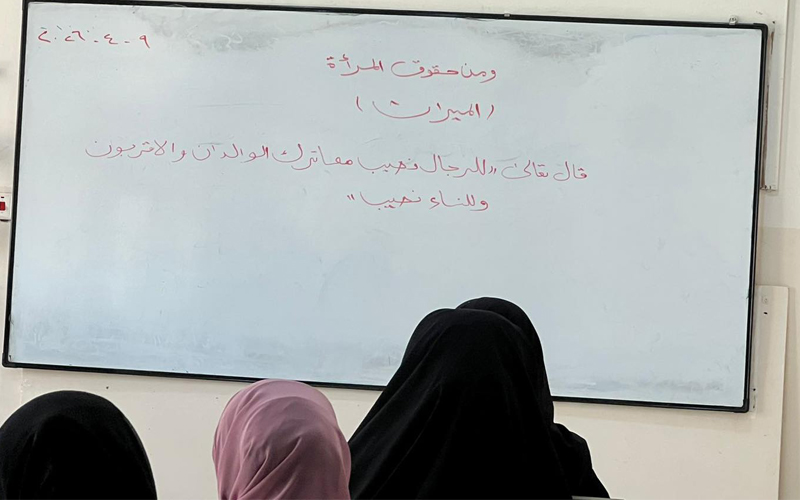 ٩-٤-٢٠٢٦
ومن حقوق المرأة
(الميراث)
قال تعالى "للرجال نصيب مما ترك الوالدان والاقربون
وللنساء نصيب"